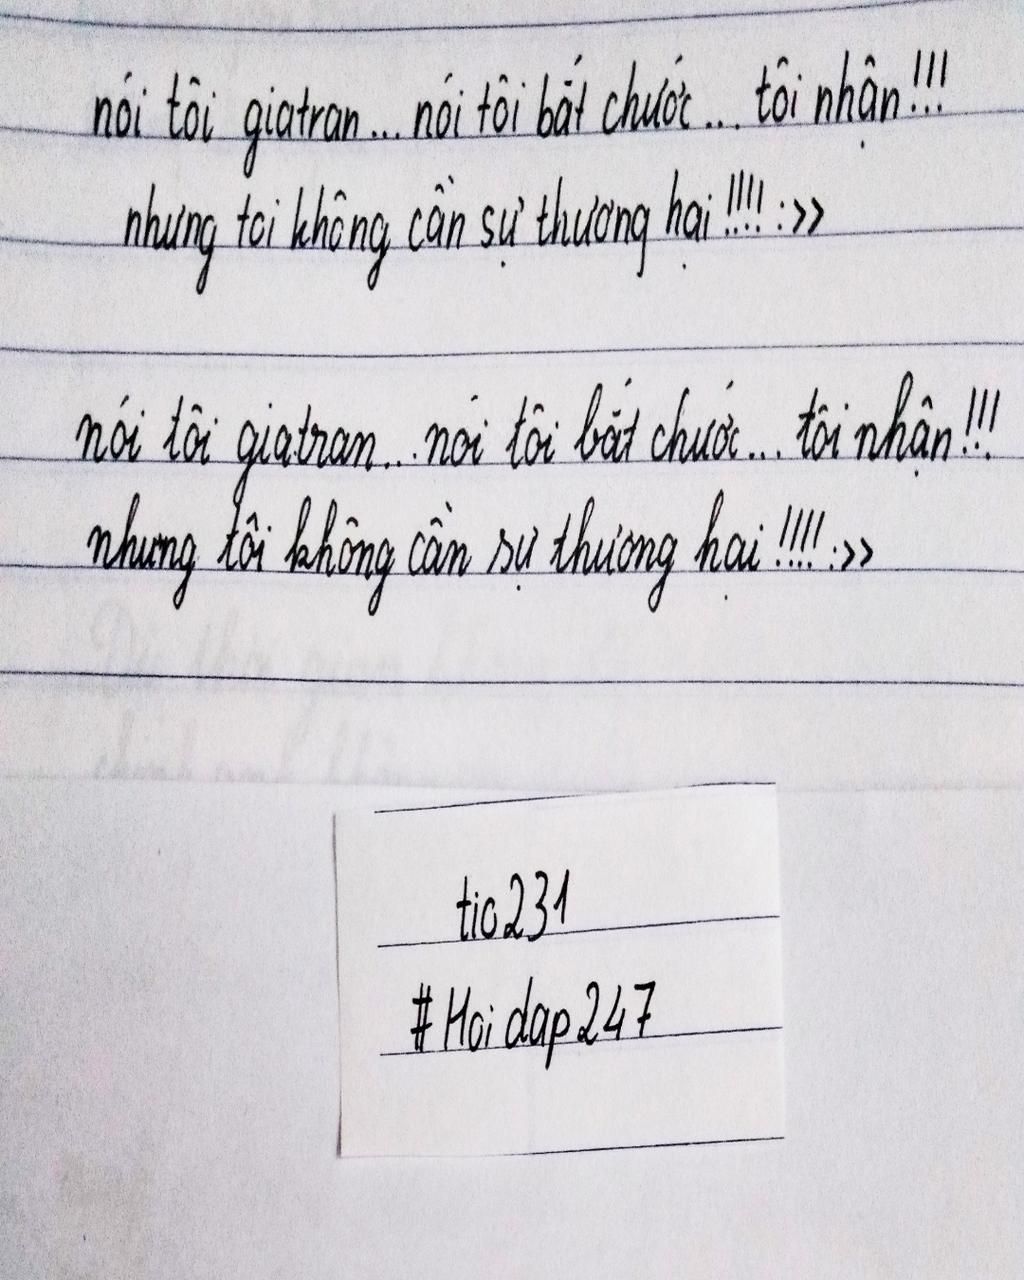 nói tôi giatran... nói tôi bắt chước... tôi nhận!!!
nhưng toi không cần sự thương hại!!!! :>>
nói tôi giatran... nói tôi bắt chước... tôi nhận!!!
nhưng tôi không cần sự thương hại!!!! :>>
tic231
#Hoidap247